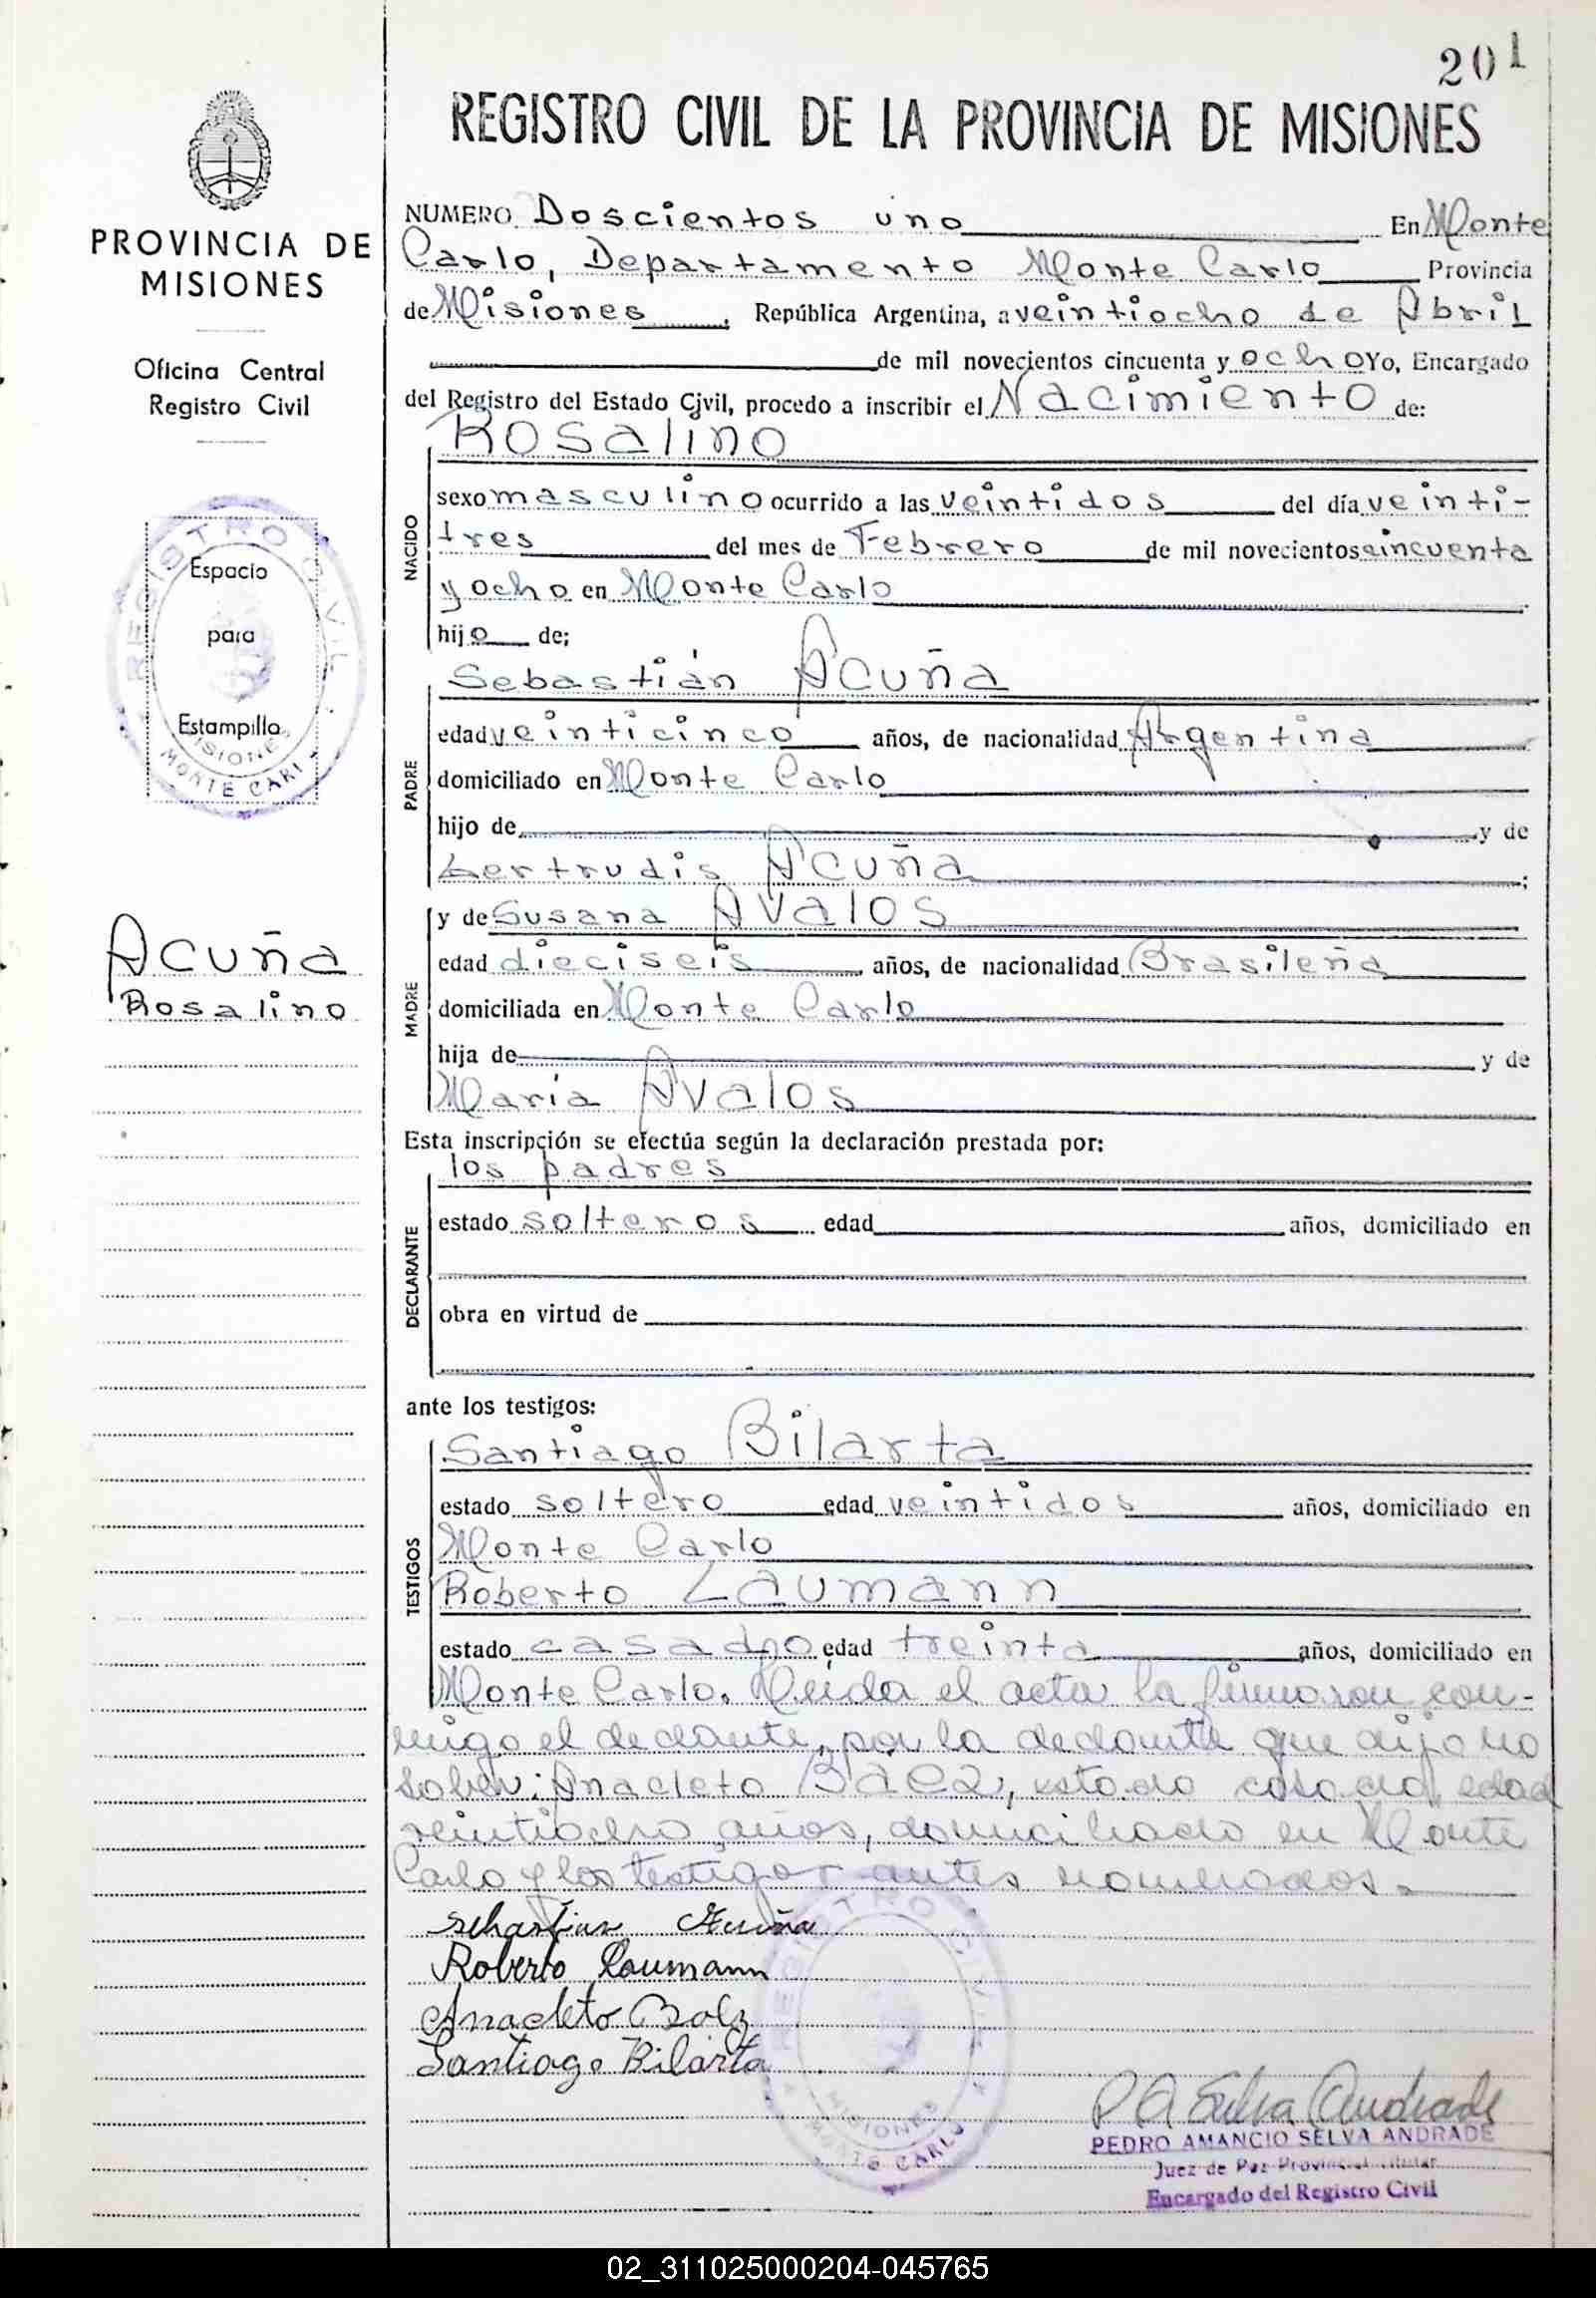 201
REGISTRO CIVIL DE LA PROVINCIA DE MISIONES
PROVINCIA DE
MISIONES
Oficina Central
Registro Civil
REGISTRO CIVIL
Espacio
para
Estampilla
MISIONES
MONTE CARL
Acuña
Rosalino
NUMERO Doscientos uno En Monte
Carlo, Departamento Monte Carlo Provincia
de Misiones, República Argentina, a veintiocho de Abril
de mil novecientos cincuenta y ocho Yo, Encargado
del Registro del Estado Civil, procedo a inscribir el Nacimiento de:
NACIDO
Rosalino
sexo masculino ocurrido a las veintidos del día veinti-
tres del mes de Febrero de mil novecientos cincuenta
y ocho en Monte Carlo
hijo de;
PADRE
Sebastián Acuña
edad veinticinco años, de nacionalidad Argentina
domiciliado en Monte Carlo
hijo de y de
Gertrudis Acuña;
MADRE
y de Susana Avalos
edad dieciseis años, de nacionalidad Brasileña
domiciliada en Monte Carlo
hija de y de
María Avalos
Esta inscripción se efectúa según la declaración prestada por:
DECLARANTE
los padres
estado solteros edad años, domiciliado en
obra en virtud de
ante los testigos:
TESTIGOS
Santiago Bilarta
estado soltero edad veintidos años, domiciliado en
Monte Carlo
Roberto Laumann
estado casado edad treinta años, domiciliado en
Monte Carlo. Leida el acta la firmaron con-
migo el declante, por la declante que dijo no
saber: Anacleto Baez, estado casado, edad
veintiocho años, domiciliado en Monte
Carlo y los testigos antes nombrados.-
Sebastian Acuña
Roberto Laumann
Anacleto
Santiago Bilarta
REGISTRO CIVIL
MISIONES
MONTE CARLO
P A Selva Andrade
PEDRO AMANCIO SELVA ANDRADE
Juez de Paz Provincial Titular
Encargado del Registro Civil
02_311025000204-045765